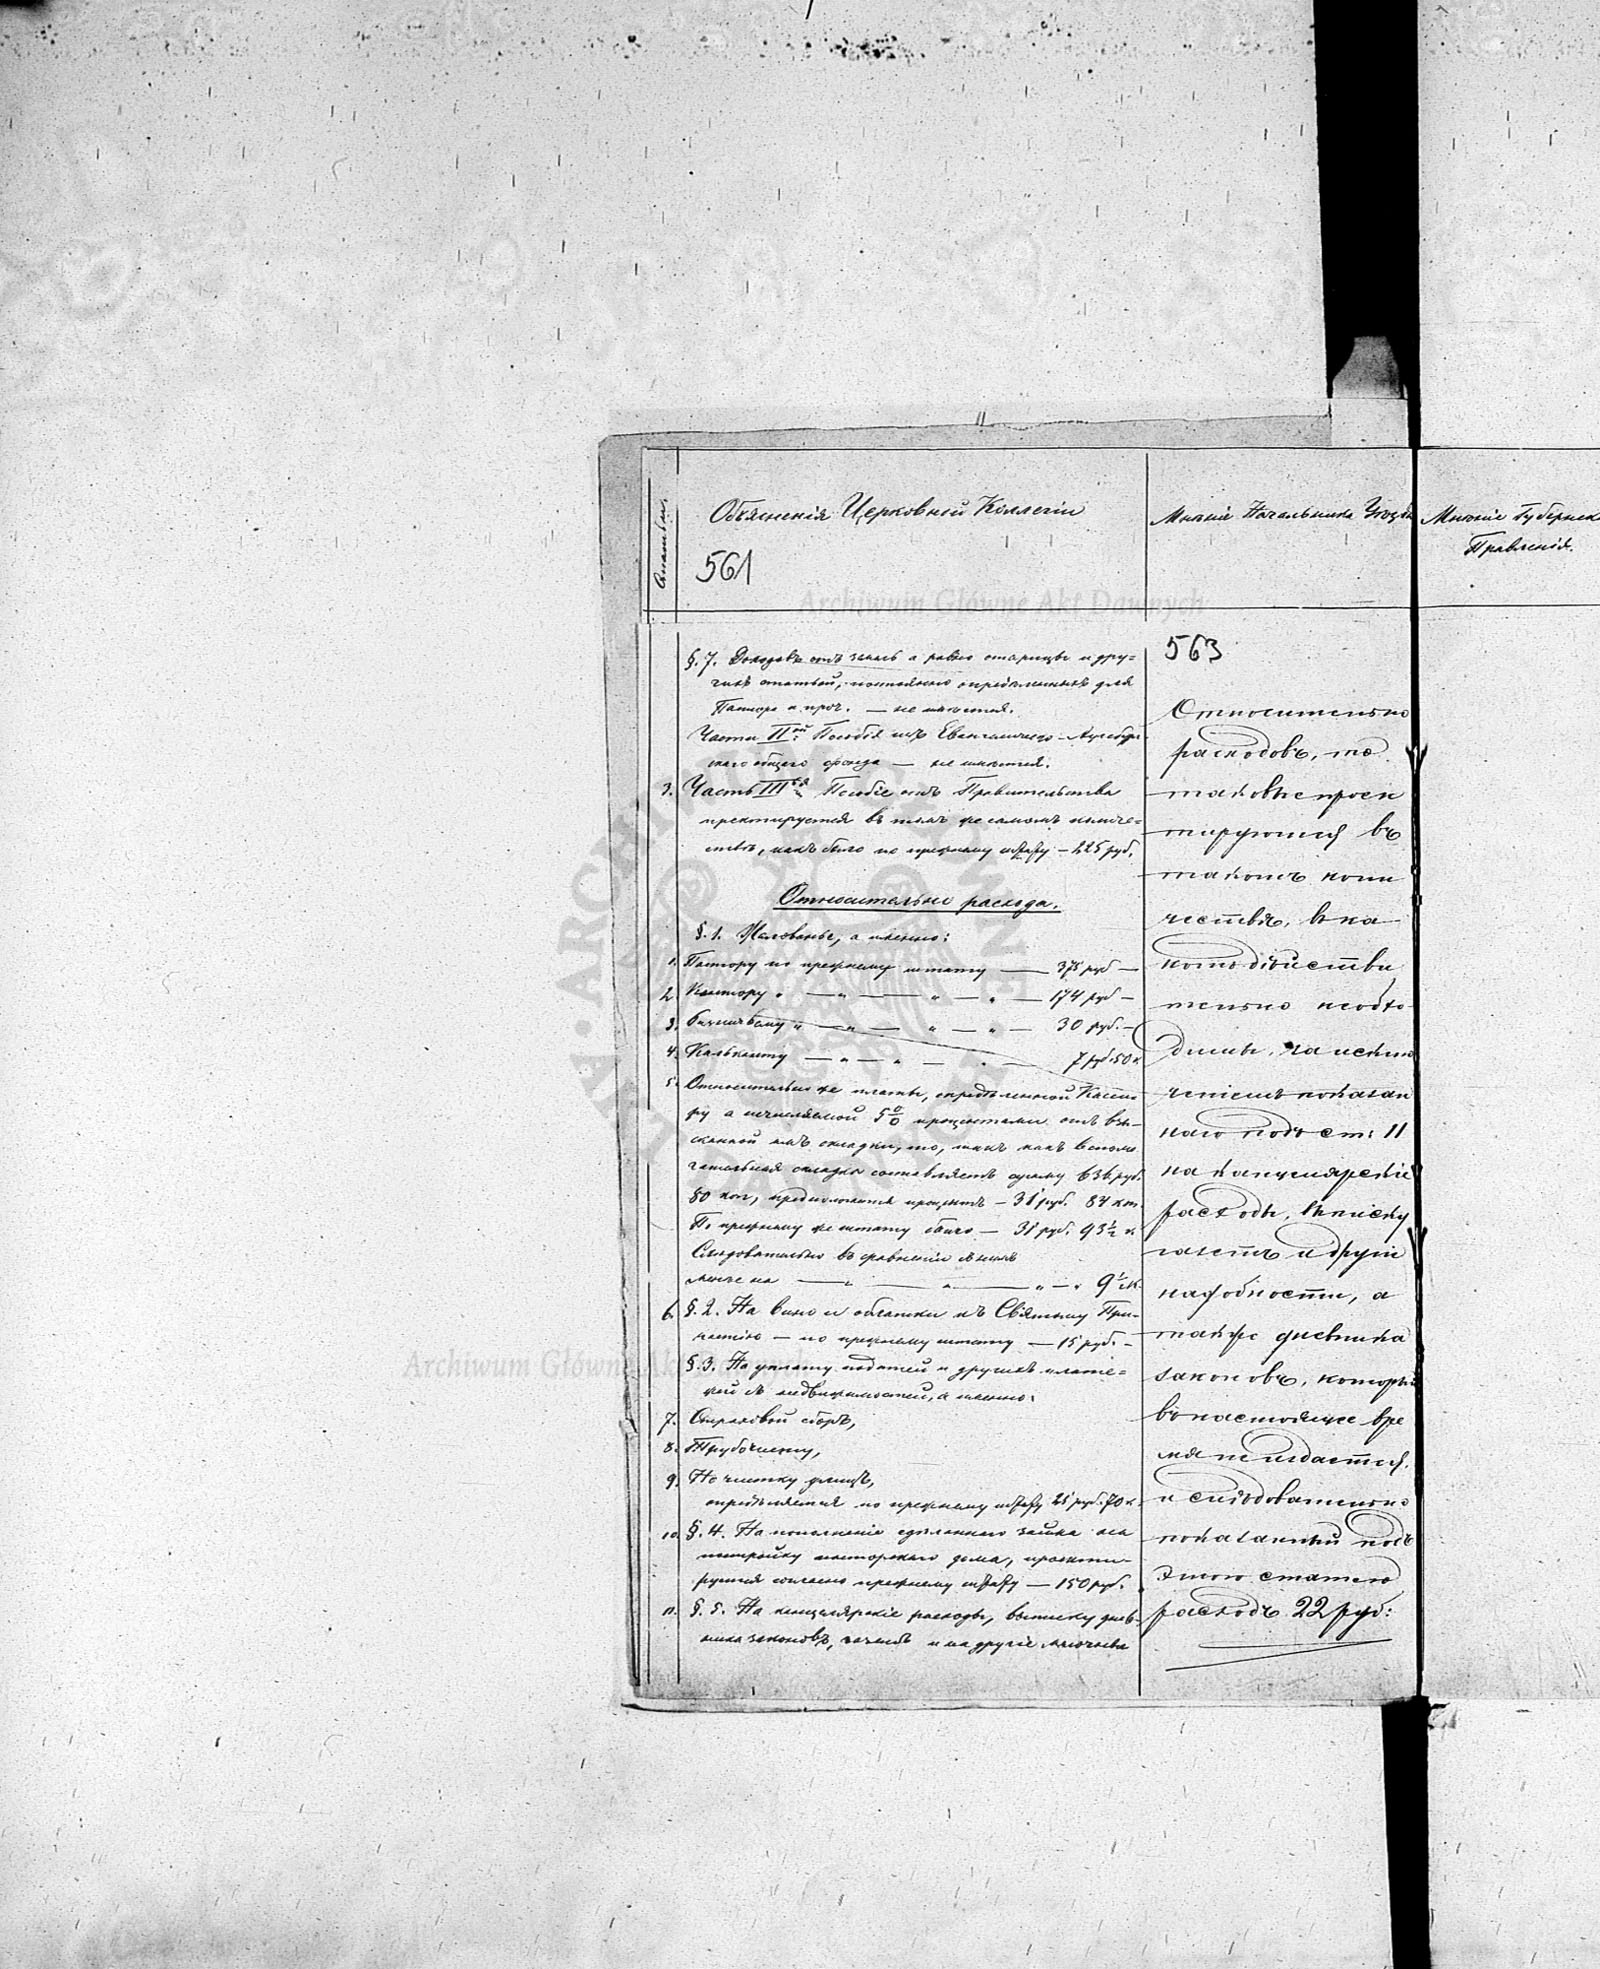 Статьи.
Объясненія Церковной Коллегіи
561
Мнѣніе Начальника Уѣзда
Мнѣніе Губернск
Правленія.
Archiwum Główne Akt Dawnych
§. 7. Доходовъ отъ земль а равно оторицы и дру-
гихъ статьей, постоянно опредѣленныхъ для
Пастора и проч. — не имѣется.
Части II ой Пособія изъ Евангелическо-Аугсбург
скаго общаго фонда — не имѣется.
3. Часть III ья Пособіе отъ Правительства
проектируется въ томъ же самомъ количе-
ствѣ, какъ было по прежнему штату — 225 руб.
Относительно расхода.
§. 1. Жалованье, а именно:
1. Пастору по прежнему штату — 375 руб —
2. Кантору " — " — " — " — 174 руб —
3. Беллничьему " — " — " — " — 30 руб. —
4. Кальканту — " — " — " 7 руб. 50 к.
5. Относительно же платы, опредѣленной Касси-
ру а исчисляемой 5 % процентами отъ взы-
сканной имъ складки, то, такъ какъ вспомо
гательная складка составляетъ сумму 636 руб.
80 коп, предположется процентъ — 31 руб. 84 коп.
По прежнему же штату было — 31 руб. 93 ½ к.
Слѣдовательно въ сравненіи съ нимъ
менѣе на — " — " — " — " 9 ½ к.
6. §. 2. На вино и облатки къ Святому При-
частію — по прежнему штату — 15 руб. —
Archiwum Główne Akt Dawnych
§. 3. На уплату податей и другихъ плате-
жей съ недвижимостей, а именно:
7. Страховой сборъ,
8. Трубочисту,
9. На чистку улицъ,
опредѣляется по прежнему штату 21 руб. 70 к.
10. §. 4. На пополненіе сдѣланнаго займа на
постройку пасторскаго дома, проекти-
руется согласно прежнему штату — 150 руб.
11. §. 5. На канцелярскіе расходы, выписку днев-
ника законовъ, газетъ и на другіе мелочные
563
Относительно
расходовъ, то
таковые проек
тируются въ
такомъ коли
чествѣ, въ ка
комъ дѣйстви
тельно необхо
димы, за исклю
ченіемъ показан
наго подъ ст: 11
на канцелярскіе
расходы, выписку
газетъ и другіе
надобности, а
также дневника
законовъ, который
въ настоящее вре
мя не издается,
и слѣдовательно
показанный подъ
этою статьею
расходъ 22 руб: